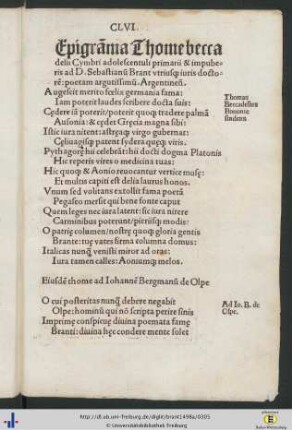 CLVI.
Epigrāma Thome becca
delii Cymbri adolescentuli primarii & impube-
ris ad D. Sebastianū Brant vtriusq̃ iuris docto-
rē: poetam argutissimū. Argentineñ.
Augescit merito fœlix germania fama:
Iam poterit laudes scribere docta suis:
Cędere iā poterit/poterit quoq̃ tradere palmā
Ausonia: & cędet Gręcia magna sibi:
Istic iura nitent: astręaq̃ virgo gubernat:
Cęliuagisq̃ patent sydera quęq̃ vitis.
Pythagorę hii celebrāt: hii docti dogma Platonis
Hic reperis vires o medicina tuas:
Hic quoq̃ & Aonio reuocantur vertice musę:
Et multis capiti est delia laurus honos.
Vnum sed volitans extollit fama poetā
Pegaseo mersit qui bene fonte caput
Quem leges nec iura latent: sic iura nitere
Carminibus poterunt/pictiīsq̃ modis:
O patrię columen/nostrę quoq̃ gloria gentis
Brante: tuę vates firma columna domus:
Italicas nunq̄ venisti miror ad oras:
Iura tamen calles: Aoniumq̃ melos.
Thomas
Beccadelius
Bononie
studens
Eiusdē thome ad Iohannē Bergmanū de Olpe
O cui posteritas nunq̄ debere negabit
Olpe: hominū qui nō scripta perire sinis
Imprime conspicuę diuina poemata famę
Branti: diuina hęc condere mente solet
Ad Io. B. de
Olpe.
http://dl.ub.uni-freiburg.de/diglit/brant1498a/0305
© Universitätsbibliothek Freiburg